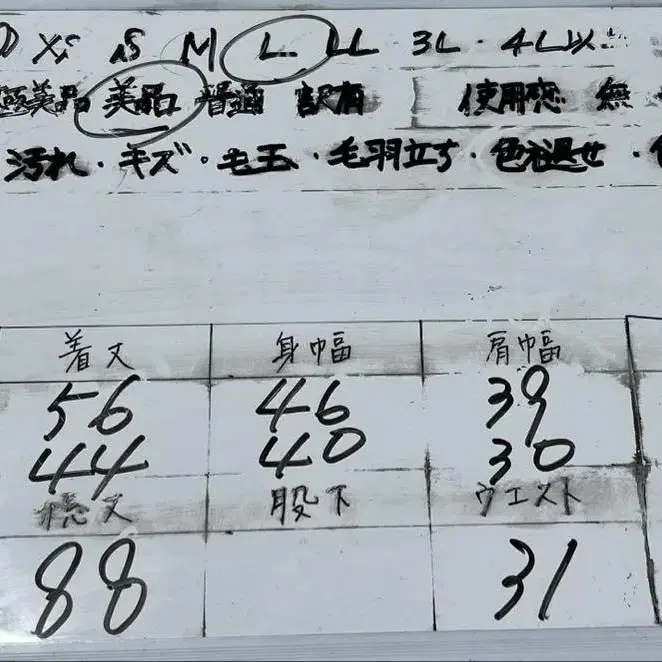 XS S M L LL 3L・4L以
極美品 美品 普通 訳有 使用感 無
汚れ・キズ・毛玉・毛羽立ち・色褪せ・
着丈 身幅 肩幅
56 46 39
44 40 30
総丈 股下 ウエスト
88 31